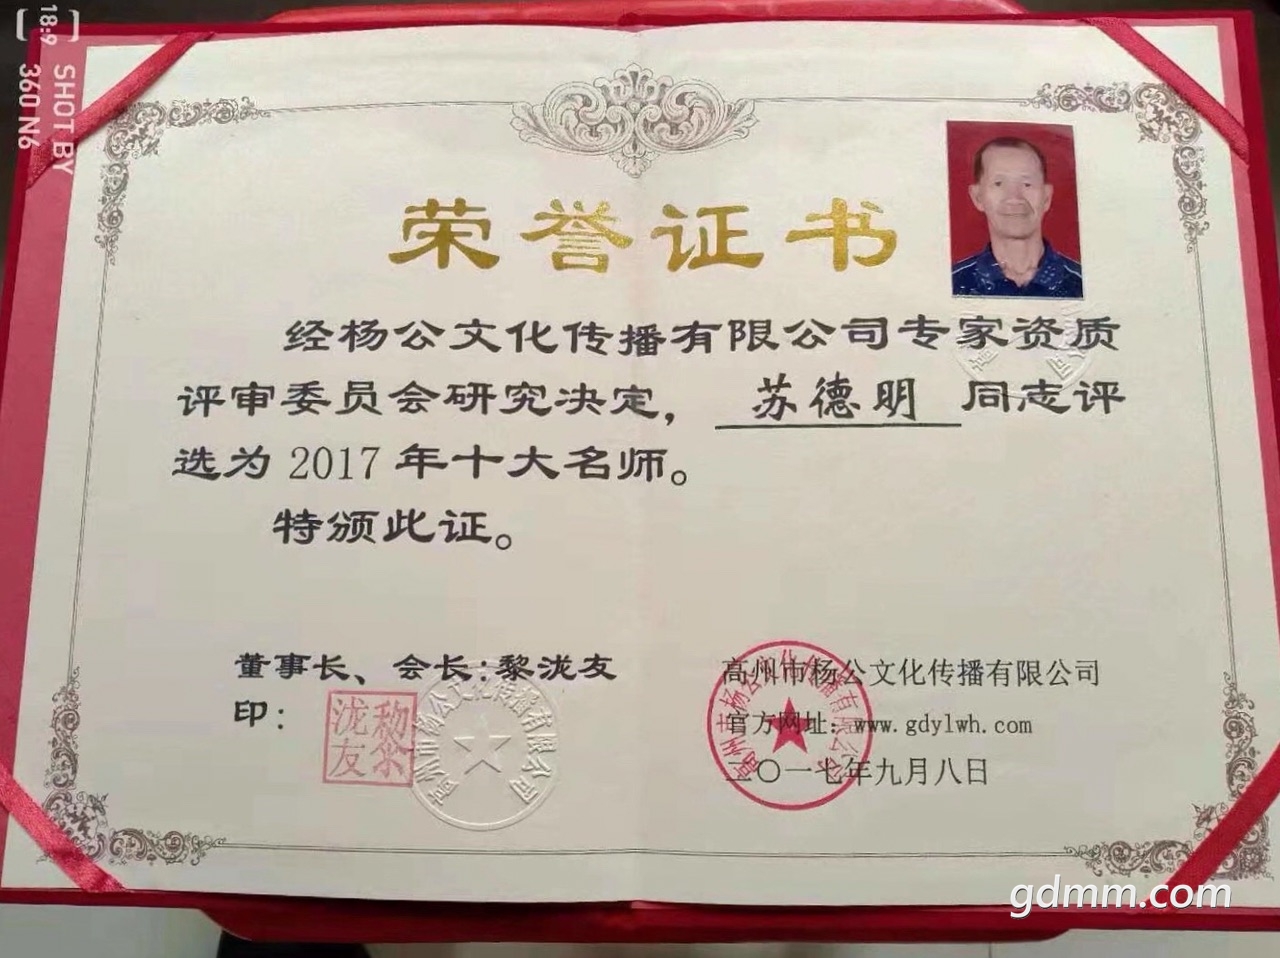 荣誉证书
经杨公文化传播有限公司专家资质
评审委员会研究决定，苏德明 同志评
选为 2017 年十大名师。
特颁此证。
董事长、会长：黎泷友
印：
黎泷友
高州市杨公文化传播有限公司
高州市杨公文化传播有限公司
官方网址：www.gdylwh.com
二〇一七年九月八日
高州市杨公文化传播有限公司
SHOT BY
360 N6
18:9
gdmm.com